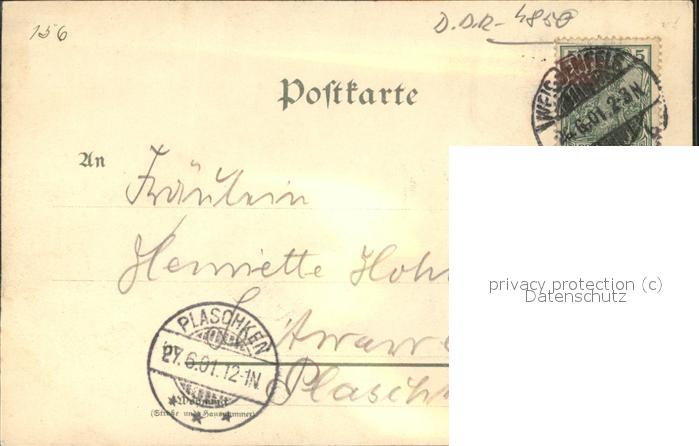 156
D.D.R - 4850
5
WEISSENFELS
6.01. 2-3 N
Postkarte
An
Fräulein
Henriette Hoh
privacy protection (c)
Datenschutz
PLASCHKEN
27.6.01.12-1N.
Plasch
Wohnung
(Straße und Hausnummer)